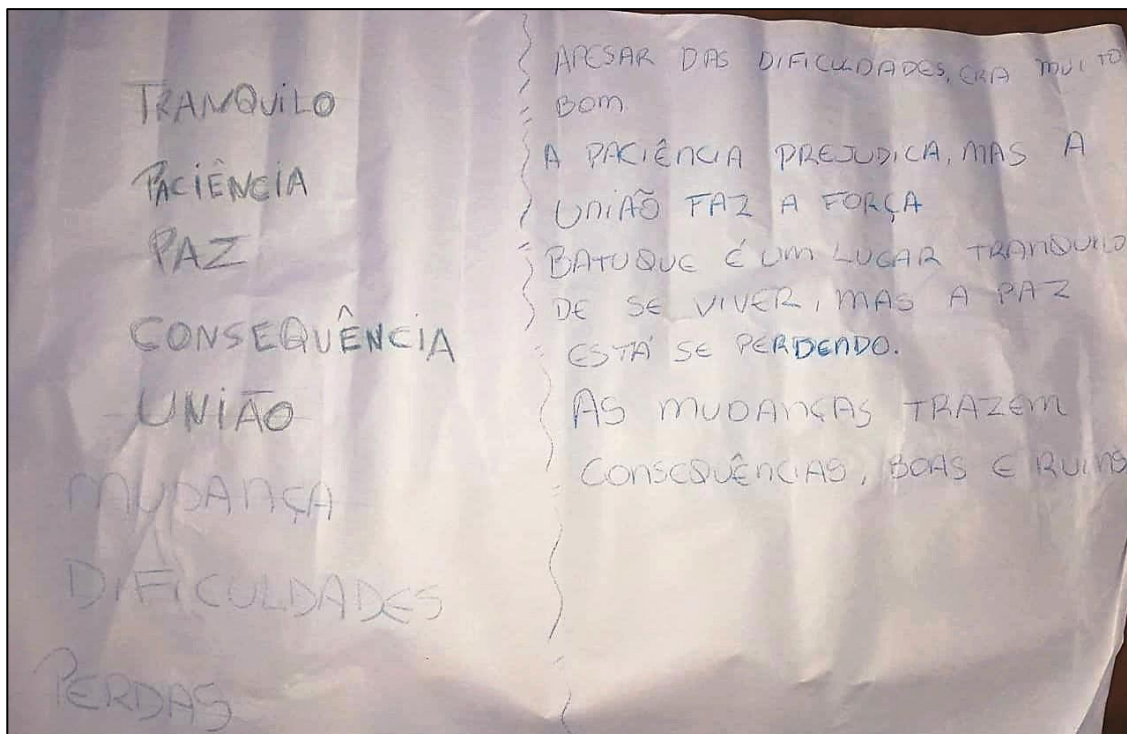 TRANQUILO
PACIÊNCIA
PAZ
CONSEQUÊNCIA
UNIÃO
MUDANÇA
DIFICULDADES
PERDAS
APESAR DAS DIFICULDADES, ERA MUITO
BOM
A PACIÊNCIA PREJUDICA, MAS A
UNIÃO FAZ A FORÇA
BATUQUE É UM LUGAR TRANQUILO
DE SE VIVER, MAS A PAZ
ESTÁ SE PERDENDO.
AS MUDANÇAS TRAZEM
CONSEQUÊNCIAS, BOAS E RUINS